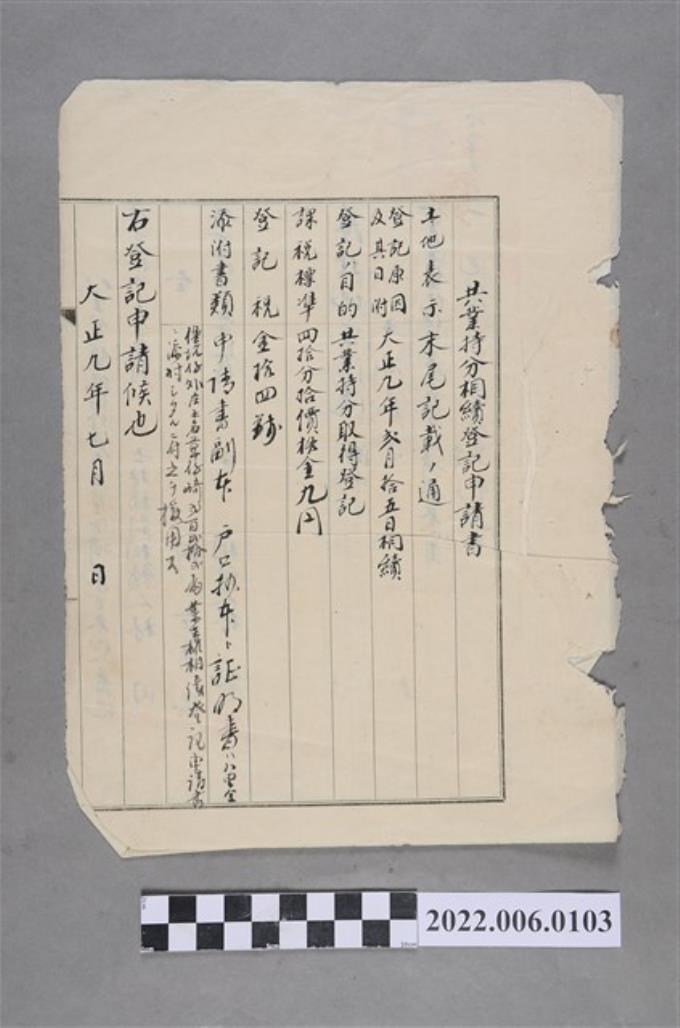 共業持分相續登記申請書
土地表示 末尾記載ノ通
登記原因
及其日附 大正九年弍月拾五日相續
登記ノ目的 共業持分取得登記
課税標準 四拾分拾價格金九円
登記税 金拾四錢
添附書類 申請書副本 戸口抄本、証明書ハ
業主權相續登記申請書
添附シタルニ付之ヲ援用ス
右登記申請候也
大正九年七月 日
2022.006.0103